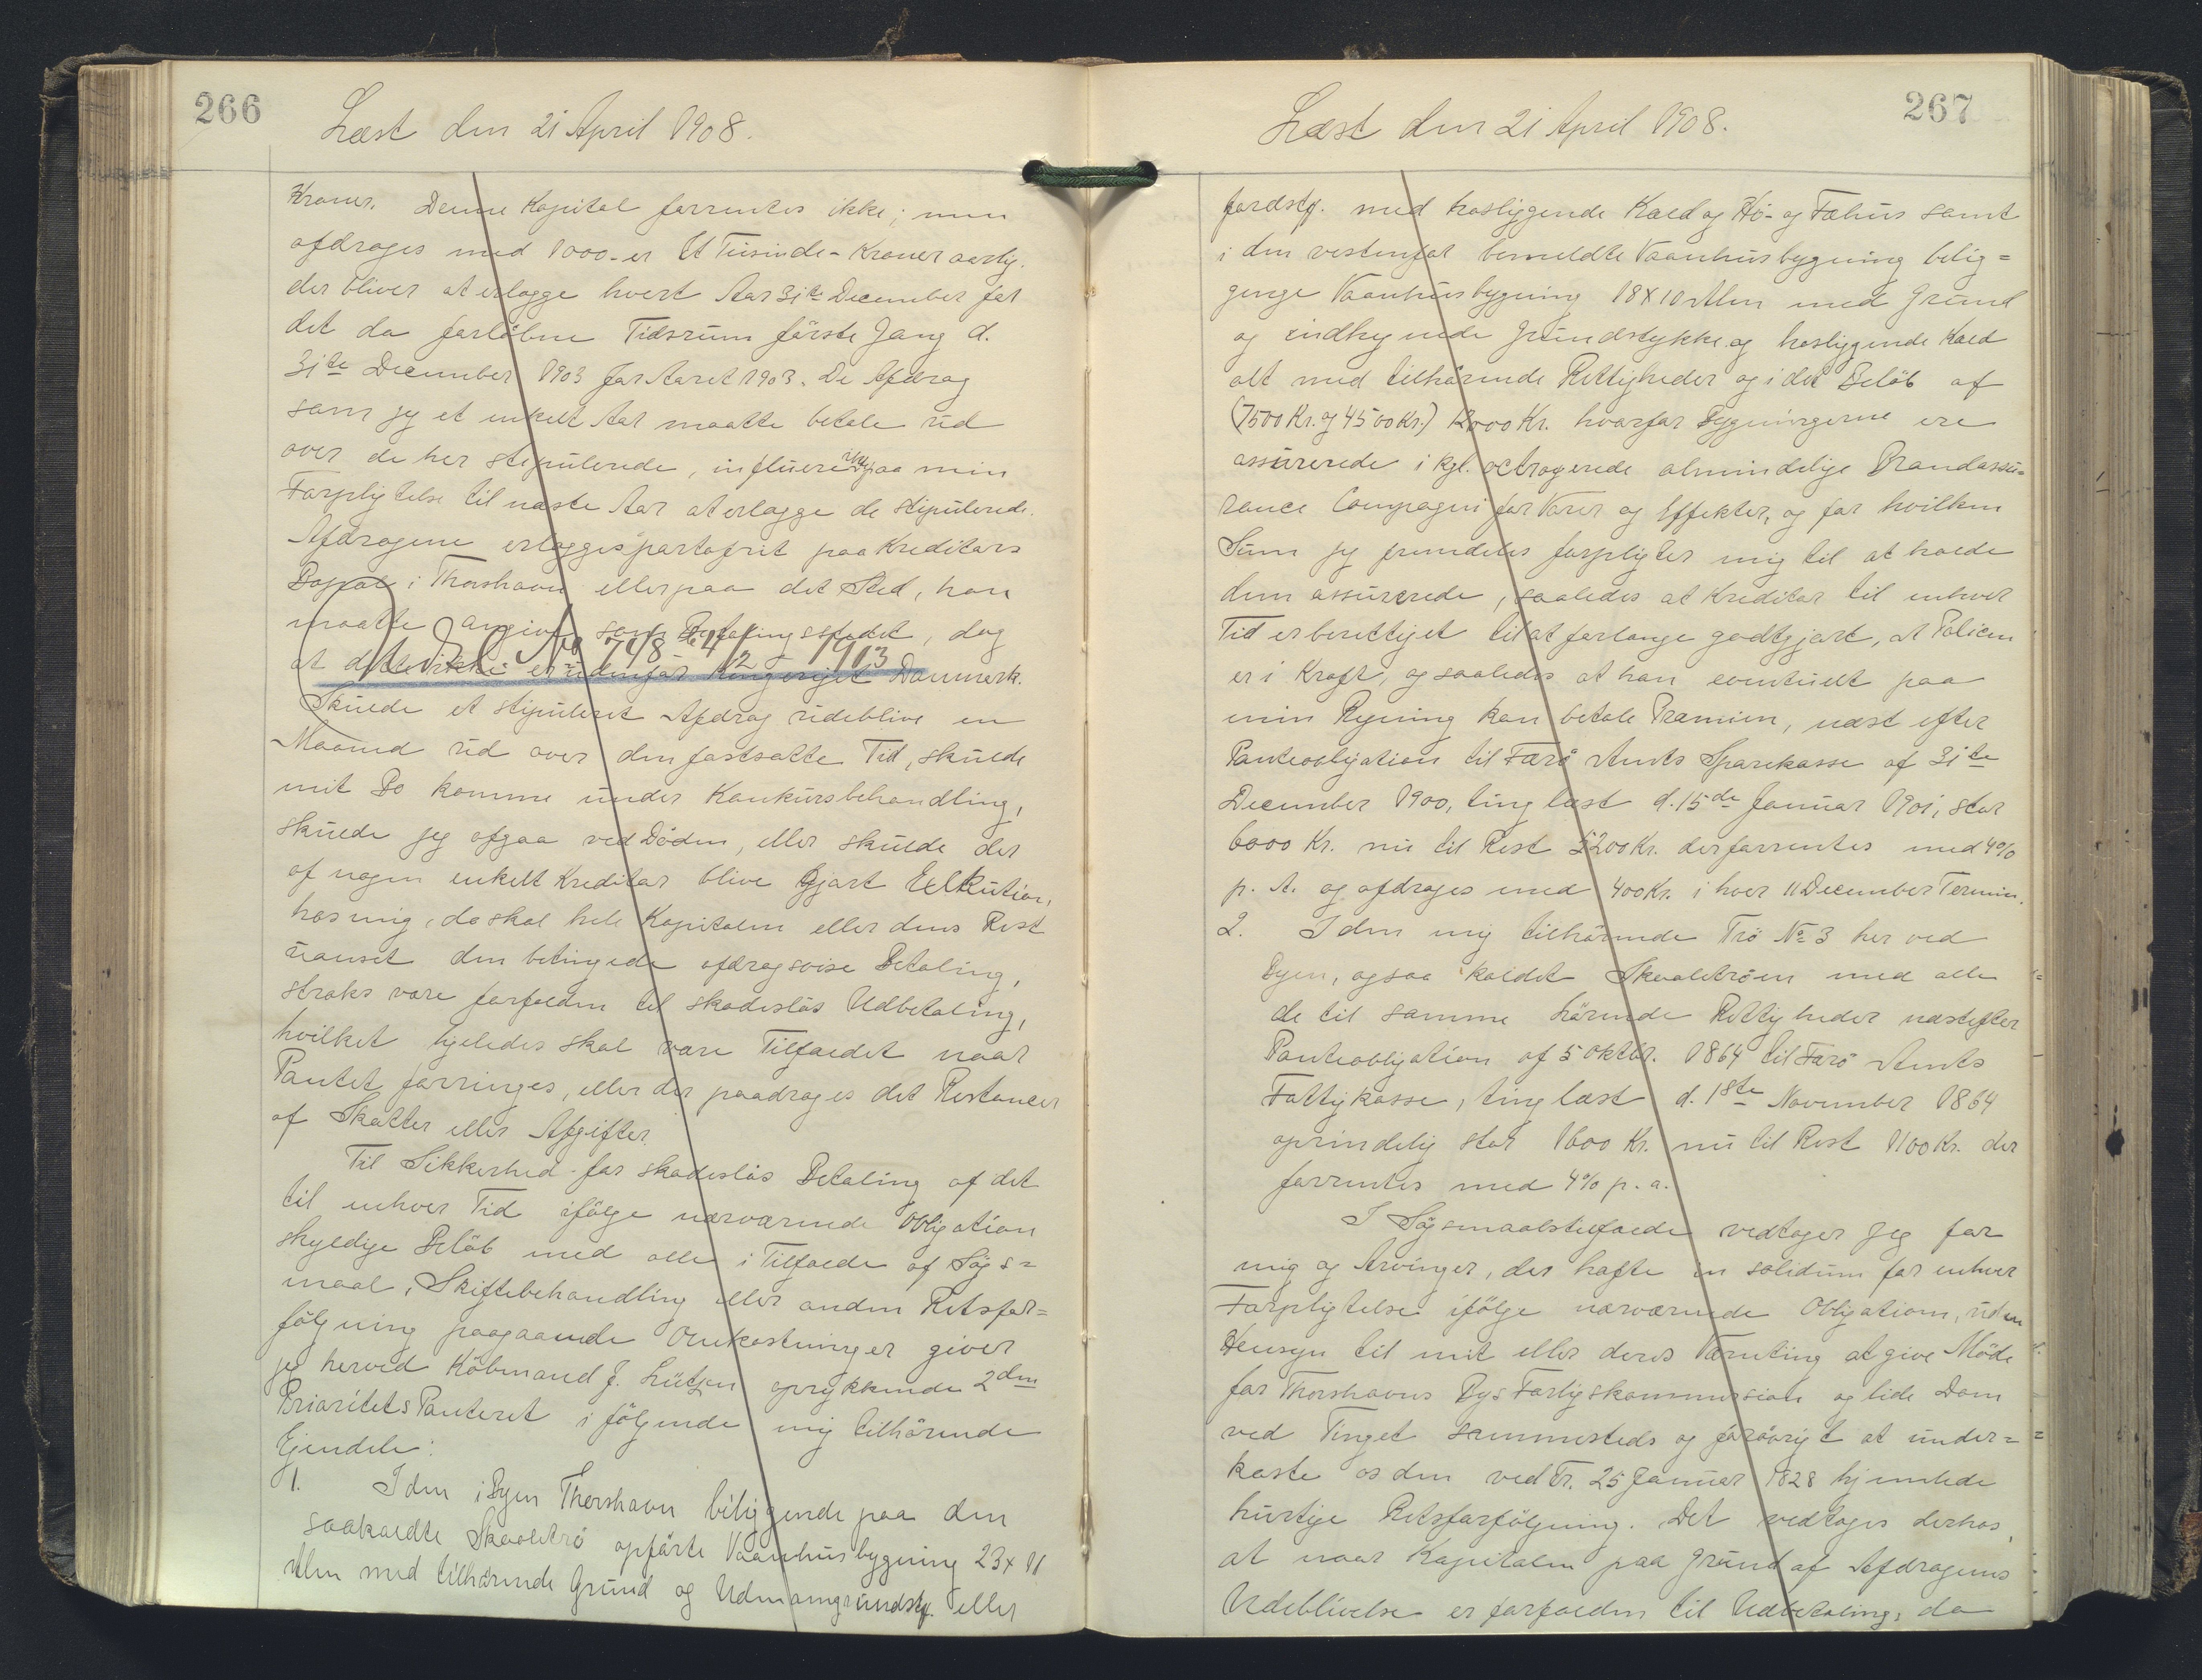 266
Læst den 21 April 1908.
Kroner. Denne Kapital forrentes ikke; men
afdrages med 1000 - er Et Tusinde - Kroner aarlig.
der bliver at erlægge hvert Aar 31te December for
det da forløbne Tidsrum første Gang d.
31te December 1903 for Aaret 1903. De Afdrag
som jeg et enkelt Aar maatte betale ud
over de her stipulerede, influere ikke paa min
Forpligtelse til næste Aar at erlægge de stipulerede.
Afdragene erlægges portofrit paa Kreditors
Bopæl i Thorshavn eller paa det Sted, han
maatte angive som Betalingsstedet, dog
at dette ikke er udenfor Kongeriget Danmark.
No 748 4/12 1913
Skulde et stipuleret Afdrag udeblive en
Maaned ud over den fastsatte Tid, skulde
mit Bo komme under Konkursbehandling,
skulde jeg afgaa ved Døden, eller skulde der
af nogen enkelt Kreditor blive gjort Exekution,
hos mig, da skal hele Kapitalen eller dens Rest
uanset den betingede afdragsvise Betaling,
straks være forfalden til skadesløs Udbetaling,
hvilket ligeledes skal være Tilfældet naar
Pantet forringes, eller der paadrages det Restancer
af Skatter eller Afgifter.
Til Sikkerhed for skadesløs Betaling af det
til enhver Tid ifølge nærværende Obligation
skyldige Beløb med alle i Tilfælde af Søgs=
maal, Skiftebehandling eller anden Retsfor=
følgning paagaaende Omkostninger giver
jeg herved Købmand J. Lützen oprykkende 2den
Prioritets Panteret i følgende mig tilhørende
Ejendele:
1. I den i Byen Thorshavn beliggende paa den
saakaldte Skaaletrø opførte Vaanhusbygning 23 x 11
Alen med tilhørende Grund og Udenomgrundsty. eller
267
Læst den 21 April 1908.
jordsty. med hosliggende Kald og Hø- og Fæhus samt
i den vestenfor bemeldte Vaanhusbygning belig=
genge Vaanhusbygning 18 X 10 Alen med Grund
og indhegnede Grundstykke og hosliggende Kald
alt med tilhørende Rettigheder og i det Beløb af
(7500 Kr. og 4500 Kr.) 12000 Kr. hvorfor Bygningerne ere
assurerede i kgl. octrogerede almindelige Brandassu=
rance Compagni for Varer og Effekter, og for hvilken
Sum jeg fremdeles forpligter mig til at holde
dem assurerede, saaledes at Kreditor til enhver
Tid er berettiget til at forlange godtgjort, at Policen
er i Kraft, og saaledes at han eventuelt paa
min Regning kan betale Præmien, næst efter
Panteobligation til Færø Amts Sparekasse af 31te
December 1900, tinglæst d. 15de Januar 1901, stor
6000 Kr. nu til Rest 5200 Kr. der forrentes med 4%
p. A. og afdrages med 400 Kr. i hver 11 December Termin.
2. I den mig tilhørende Trø No 3 her ved
Byen, ogsaa kaldet Skaaletrøen med alle
de til samme hørende Rettigheder næstefter
Panteobligation af 5 Oktbr. 1864 til Færø Amts
Fattigkasse, tinglæst d. 18te November 1864
oprindelig stor 1600 Kr. nu til Rest 1100 Kr. der
forrentes med 4% p. a.
I Søgsmaalstilfælde vedtager jeg for
mig og Arvinger, der hæfte in solidum for enhver
Forpligtelse ifølge nærværende Obligation, uden
Hensyn til mit eller deres Værneting at give Møde
for Thorshavns Bys Forligskommission og lide Dom
ved Tinget sammesteds og forøvrigt at under=
kaste os den ved Fr. 25 Januar 1828 hjemlede
hurtige Retsforfølgning. Det vedtages derhos,
at naar Kapitalen paa Grund af Afdragenes
Udeblivelse er forfalden til Udbetaling, da